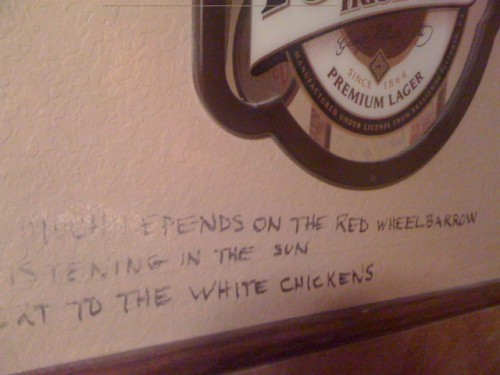 SINCE 1864
PREMIUM LAGER
MANUFACTURED UNDER LICENSE FROM
MUCH DEPENDS ON THE RED WHEELBARROW
ISTENING IN THE SUN
TO THE WHITE CHICKENS